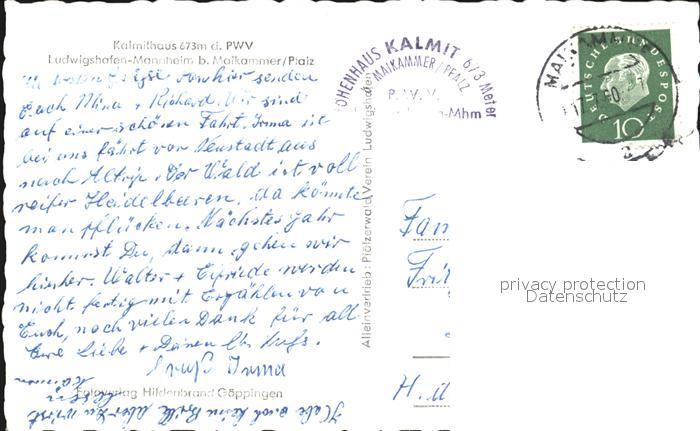 Kalmithaus 673m d. PWV
Ludwigshafen-Mannheim b. Maikammer/Pfalz
von hier senden
Euch Mina + Richard. Wir sind
auf einer schönen Fahrt. Irma ist
bei uns fährt von Neustadt aus
nach Altrip. Der Wald ist voll
reifer Heidelbeeren, da könnte
man pflücken. Nächstes Jahr
kommst Du, dann gehen wir
hinter. Walter + Elfriede werden
nicht fertig mit Erzählen von
Euch, noch vielen Dank für all
Eure Liebe +
Gruß Irma
Fotoverlag Hildenbrand Göppingen
Habe auch keine Brille aber Du wirst
Alleinvertrieb: Pfälzerwald Verein Ludwigshafen
HÖHENHAUS KALMIT 673 Meter
MAIKAMMER/PFALZ
P.W.V.
-Mhm
MAIKAMM
DEUTSCHE BUNDESPOST
10
Fam
Frit
H.
privacy protection
Datenschutz